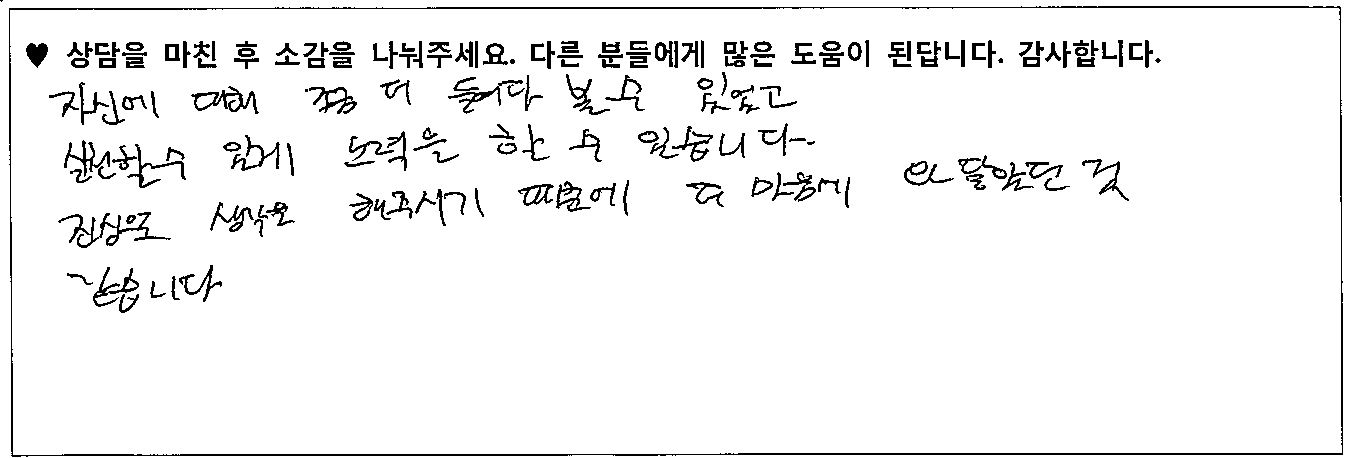 ♥ 상담을 마친 후 소감을 나눠주세요. 다른 분들에게 많은 도움이 된답니다. 감사합니다.
자신에 대해 조금 더 들여다 볼 수 있었고
실천할수 있게 노력을 할 수 있습니다.
진심으로 생각을 해주시기 때문에 더 마음에 와닿았던 것
같습니다